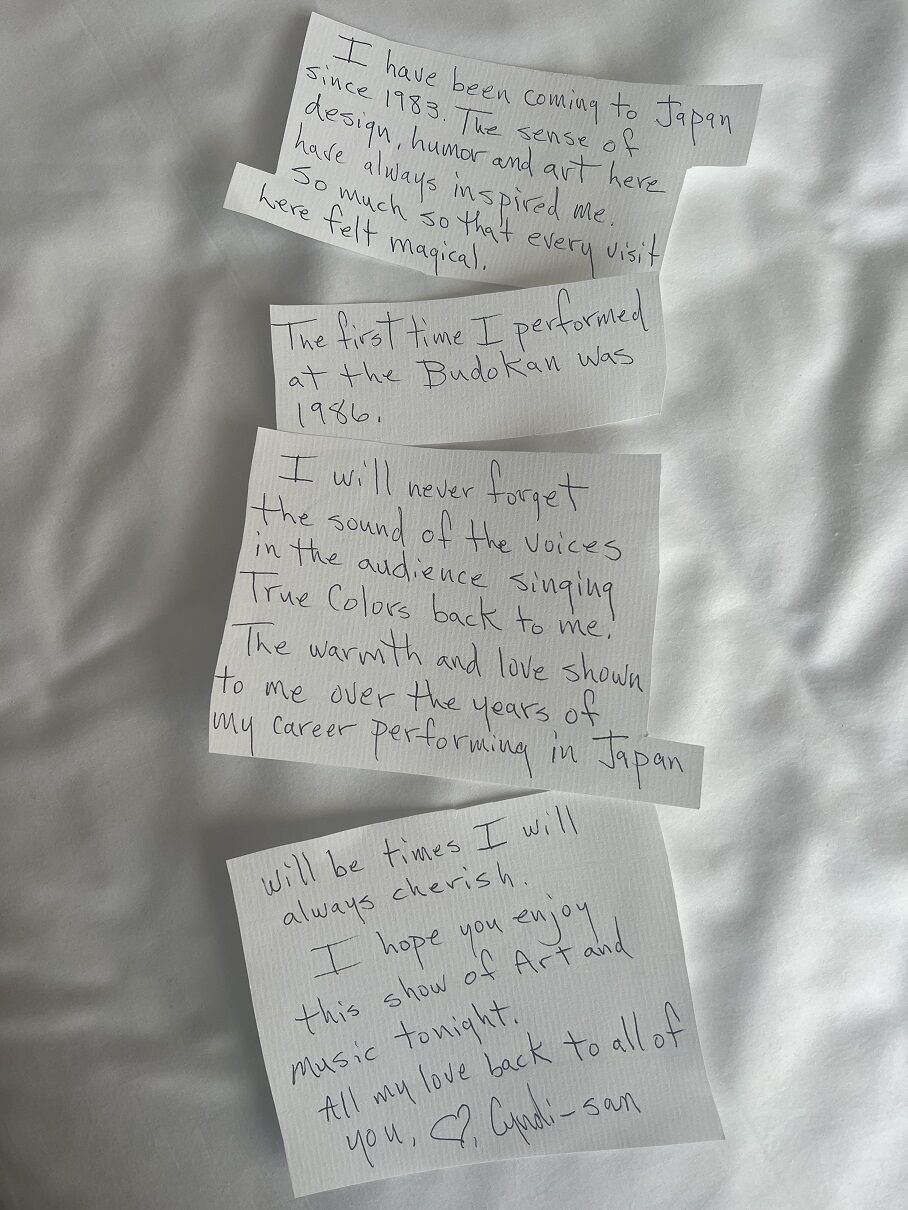 I have been coming to Japan
since 1983. The sense of
design, humor and art here
have always inspired me.
So much so that every visit
here felt magical.
The first time I performed
at the Budokan was
1986.
I will never forget
the sound of the voices
in the audience singing
True Colors back to me.
The warmth and love shown
to me over the years of
my career performing in Japan
will be times I will
always cherish.
I hope you enjoy
this show of Art and
music tonight.
All my love back to all of
you, ♡, Cyndi-san